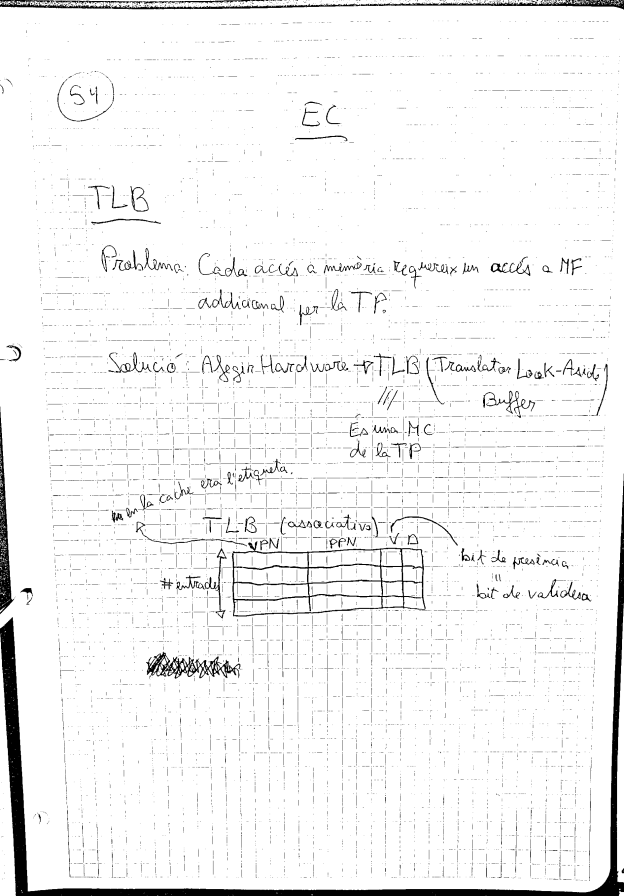 54
EC
TLB
Problema: Cada accés a memòria requereix un accés a MF
addicional per la TP.
Solució: Afegir Hardware → TLB (Translator Look-Aside
Buffer)
És una MC
de la TP
en la cache era l'etiqueta.
TLB (associativa)
VPN PPN V D
#entrades
bit de presència
"
bit de validesa